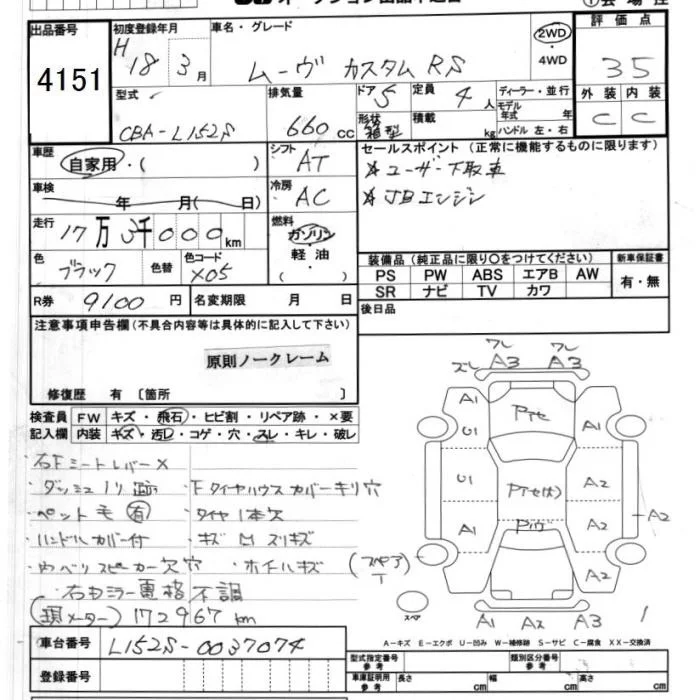 出品番号 4151
初度登録年月 H 18 3月
車名・グレード ムーヴ カスタム RS
2WD ・4WD
評価点 35
型式 CBA-L152S
排気量 660 cc
ドア 5
形状 箱型
定員 4 人
積載 kg
ディーラー・並行
モデル年式 年
ハンドル 左・右
外装 C
内装 C
車歴 自家用・( )
シフト AT
車検 年 月( 日)
冷房 AC
セールスポイント (正常に機能するものに限ります)
ユーザー下取車
JBエンジン
走行 17万 3千000km
燃料 ガソリン 軽油 ( )
色 ブラック
色替
色コード X05
装備品(純正品に限り○をつけてください)
新車保証書
PS PW ABS エアB AW
SR ナビ TV カワ
有・無
R券 9100 円
名変期限 月 日
後日品
注意事項申告欄(不具合内容等は具体的に記入して下さい)
原則ノークレーム
修復歴 有〔箇所 〕
検査員記入欄
FW キズ・飛石・ヒビ割・リペア跡・×要
内装 キズ・汚レ・コゲ・穴・スレ・キレ・破レ
・右Fシートレバー×
・ダッシュノリ跡
・Fタイヤハウスカバーキリ穴
・ペット毛(有)
・タイヤ1本欠
・ハンドルカバー付
・キズ M スリキズ
・内ベリスピーカー欠穴
・ホイルキズ
・右ドミラー電格不調
(現メーター)172967km
車台番号 L152S-0037074
登録番号
ズレ フレ A3 フレ A3
A1 Pキセ A1
U1
U1 Pキセ(大) A2
A1 Pリヴ A2
A2
A2
(スペアT)
スペア
A1 A2 A3
1
A-キズ E-エクボ U-凹み W-補修跡 S-サビ C-腐食 XX-交換済
型式指定番号 参考
類別区分番号 参考
車庫証明用 参考 長さ cm 幅 cm 高さ cm